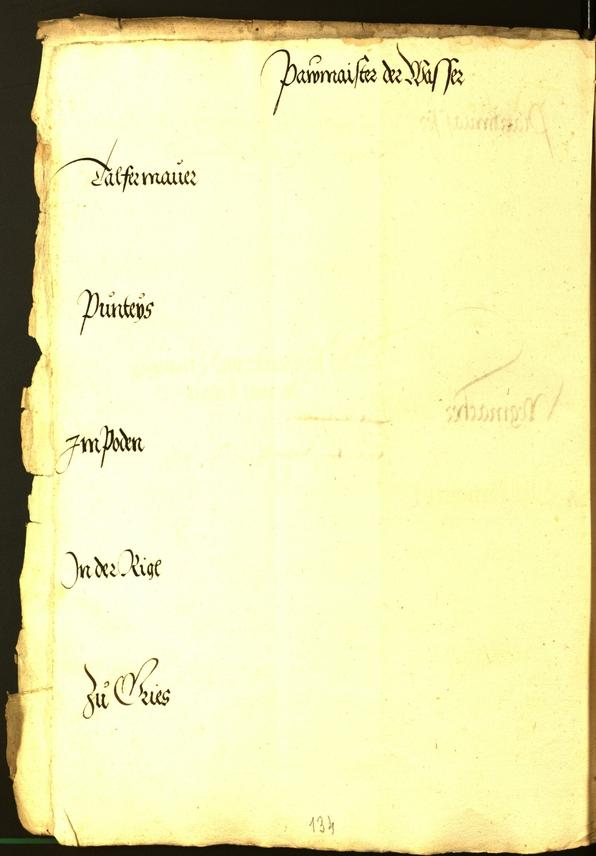 Pawmaister der Wasser
Talfermauer
Punteys
Im Poden
In der Rigl
Zu Gries
134